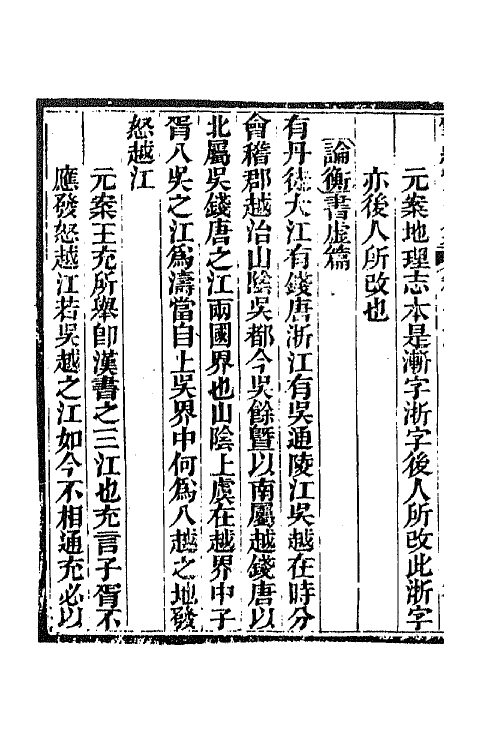 元案地理志本是漸字浙字後人所改此浙字
亦後人所改也
論衡書虛篇
有丹徒大江有錢唐浙江有吳通陵江吳越在時分
會稽郡越治山陰吳都今吳餘曁以南屬越錢唐以
北屬吳錢唐之江兩國界也山陰上虞在越界中子
胥入吳之江爲濤當自上吳界中何爲入越之地發
怒越江
元案王充所舉卽漢書之三江也充言子胥不
應發怒越江若吳越之江如今不相通充必以